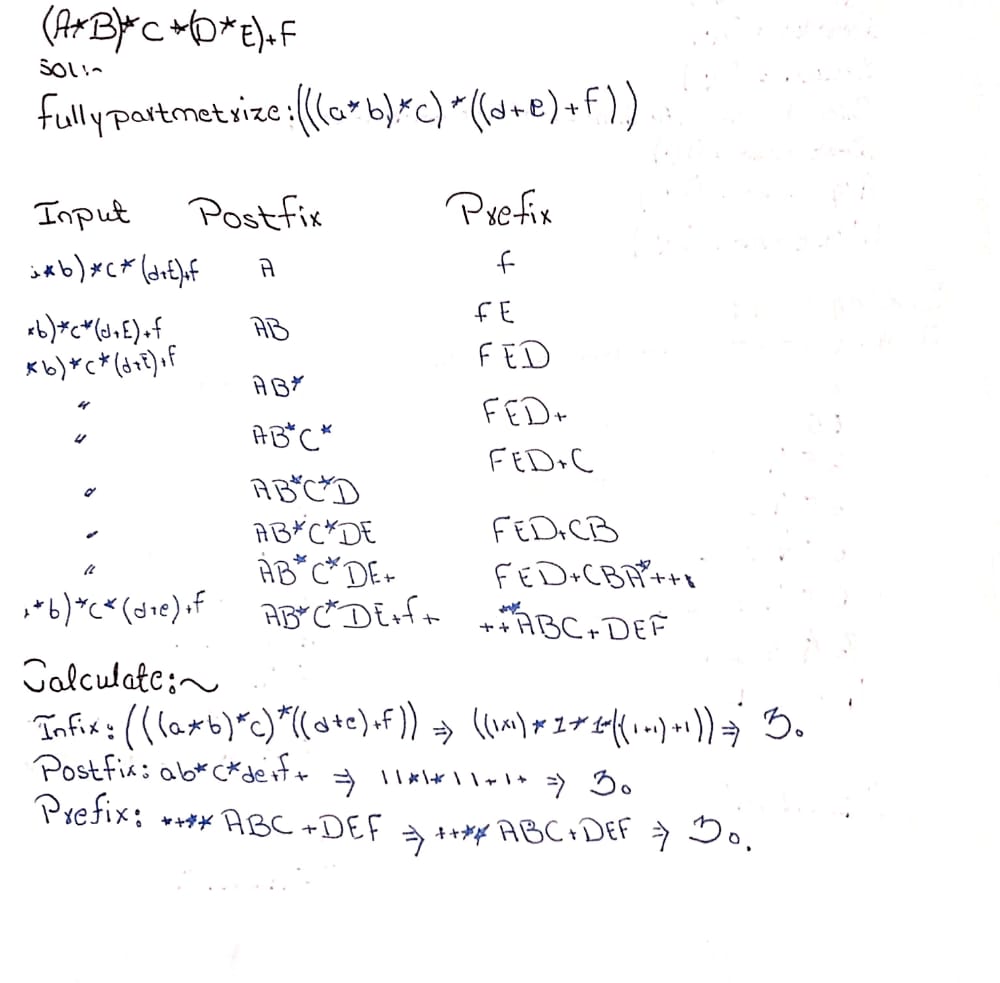 (A*B)*C*(D*E)+F
SOL:~
fullypartmetrize:(((a*b)*c)*((d+e)+f))
Input Postfix Prefix
*b)*c*(d+E)+f A f
*b)*c*(d+E)+f AB fE
*b)*c*(d+E)+f FED
" AB*
FED+
" AB*C*
FED+C
" AB*C*D
" AB*C*DE FED+CB
" AB*C*DE+ FED+CBA*+++
*b)*c*(d+e)+f AB*C*DE+f+ ++**ABC+DEF
Calculate:~
Infix: (((a*b)*c)*((d+e)+f)) ⇒ ((1x1)*1*1*((1+1)+1)) ⇒ 3.
Postfix: ab*c*de+f+ ⇒ 11*1*11+1+ ⇒ 3.
Prefix: ++** ABC +DEF ⇒ ++** ABC+DEF ⇒ 3.